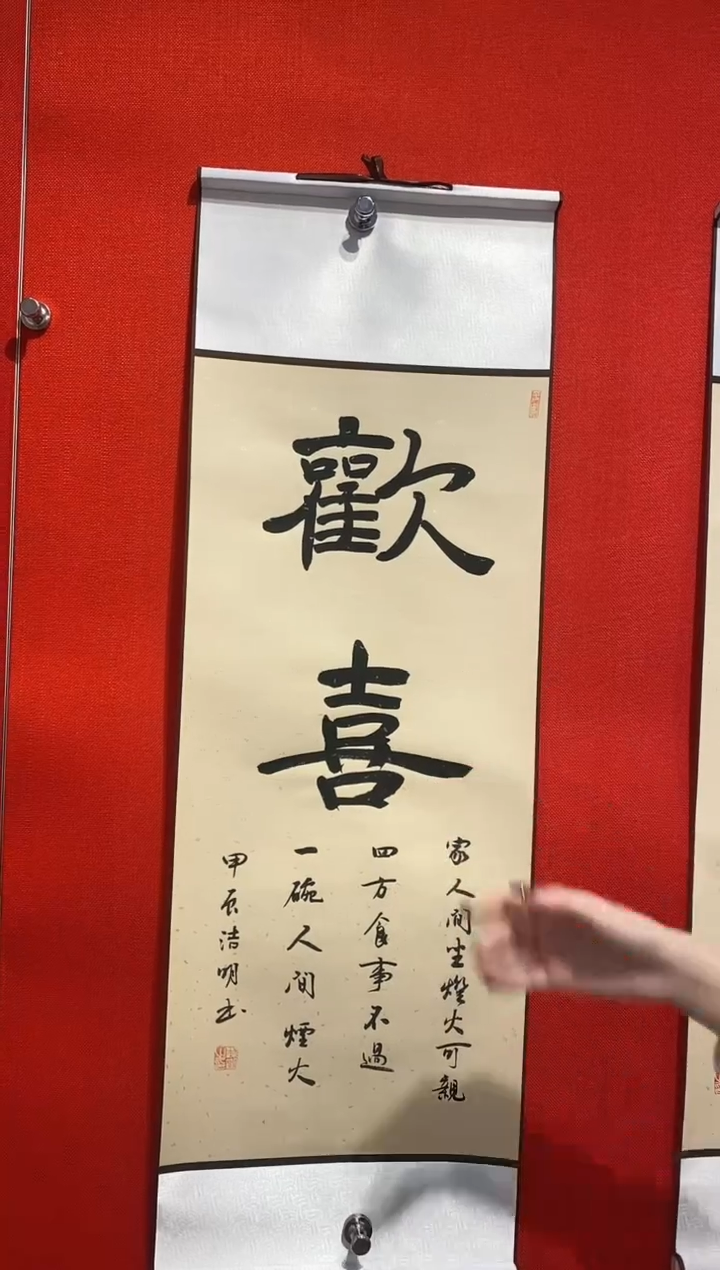 歡
喜
家人閒坐燈火可親
四方食事不過
一碗人間煙火
甲辰洁明书